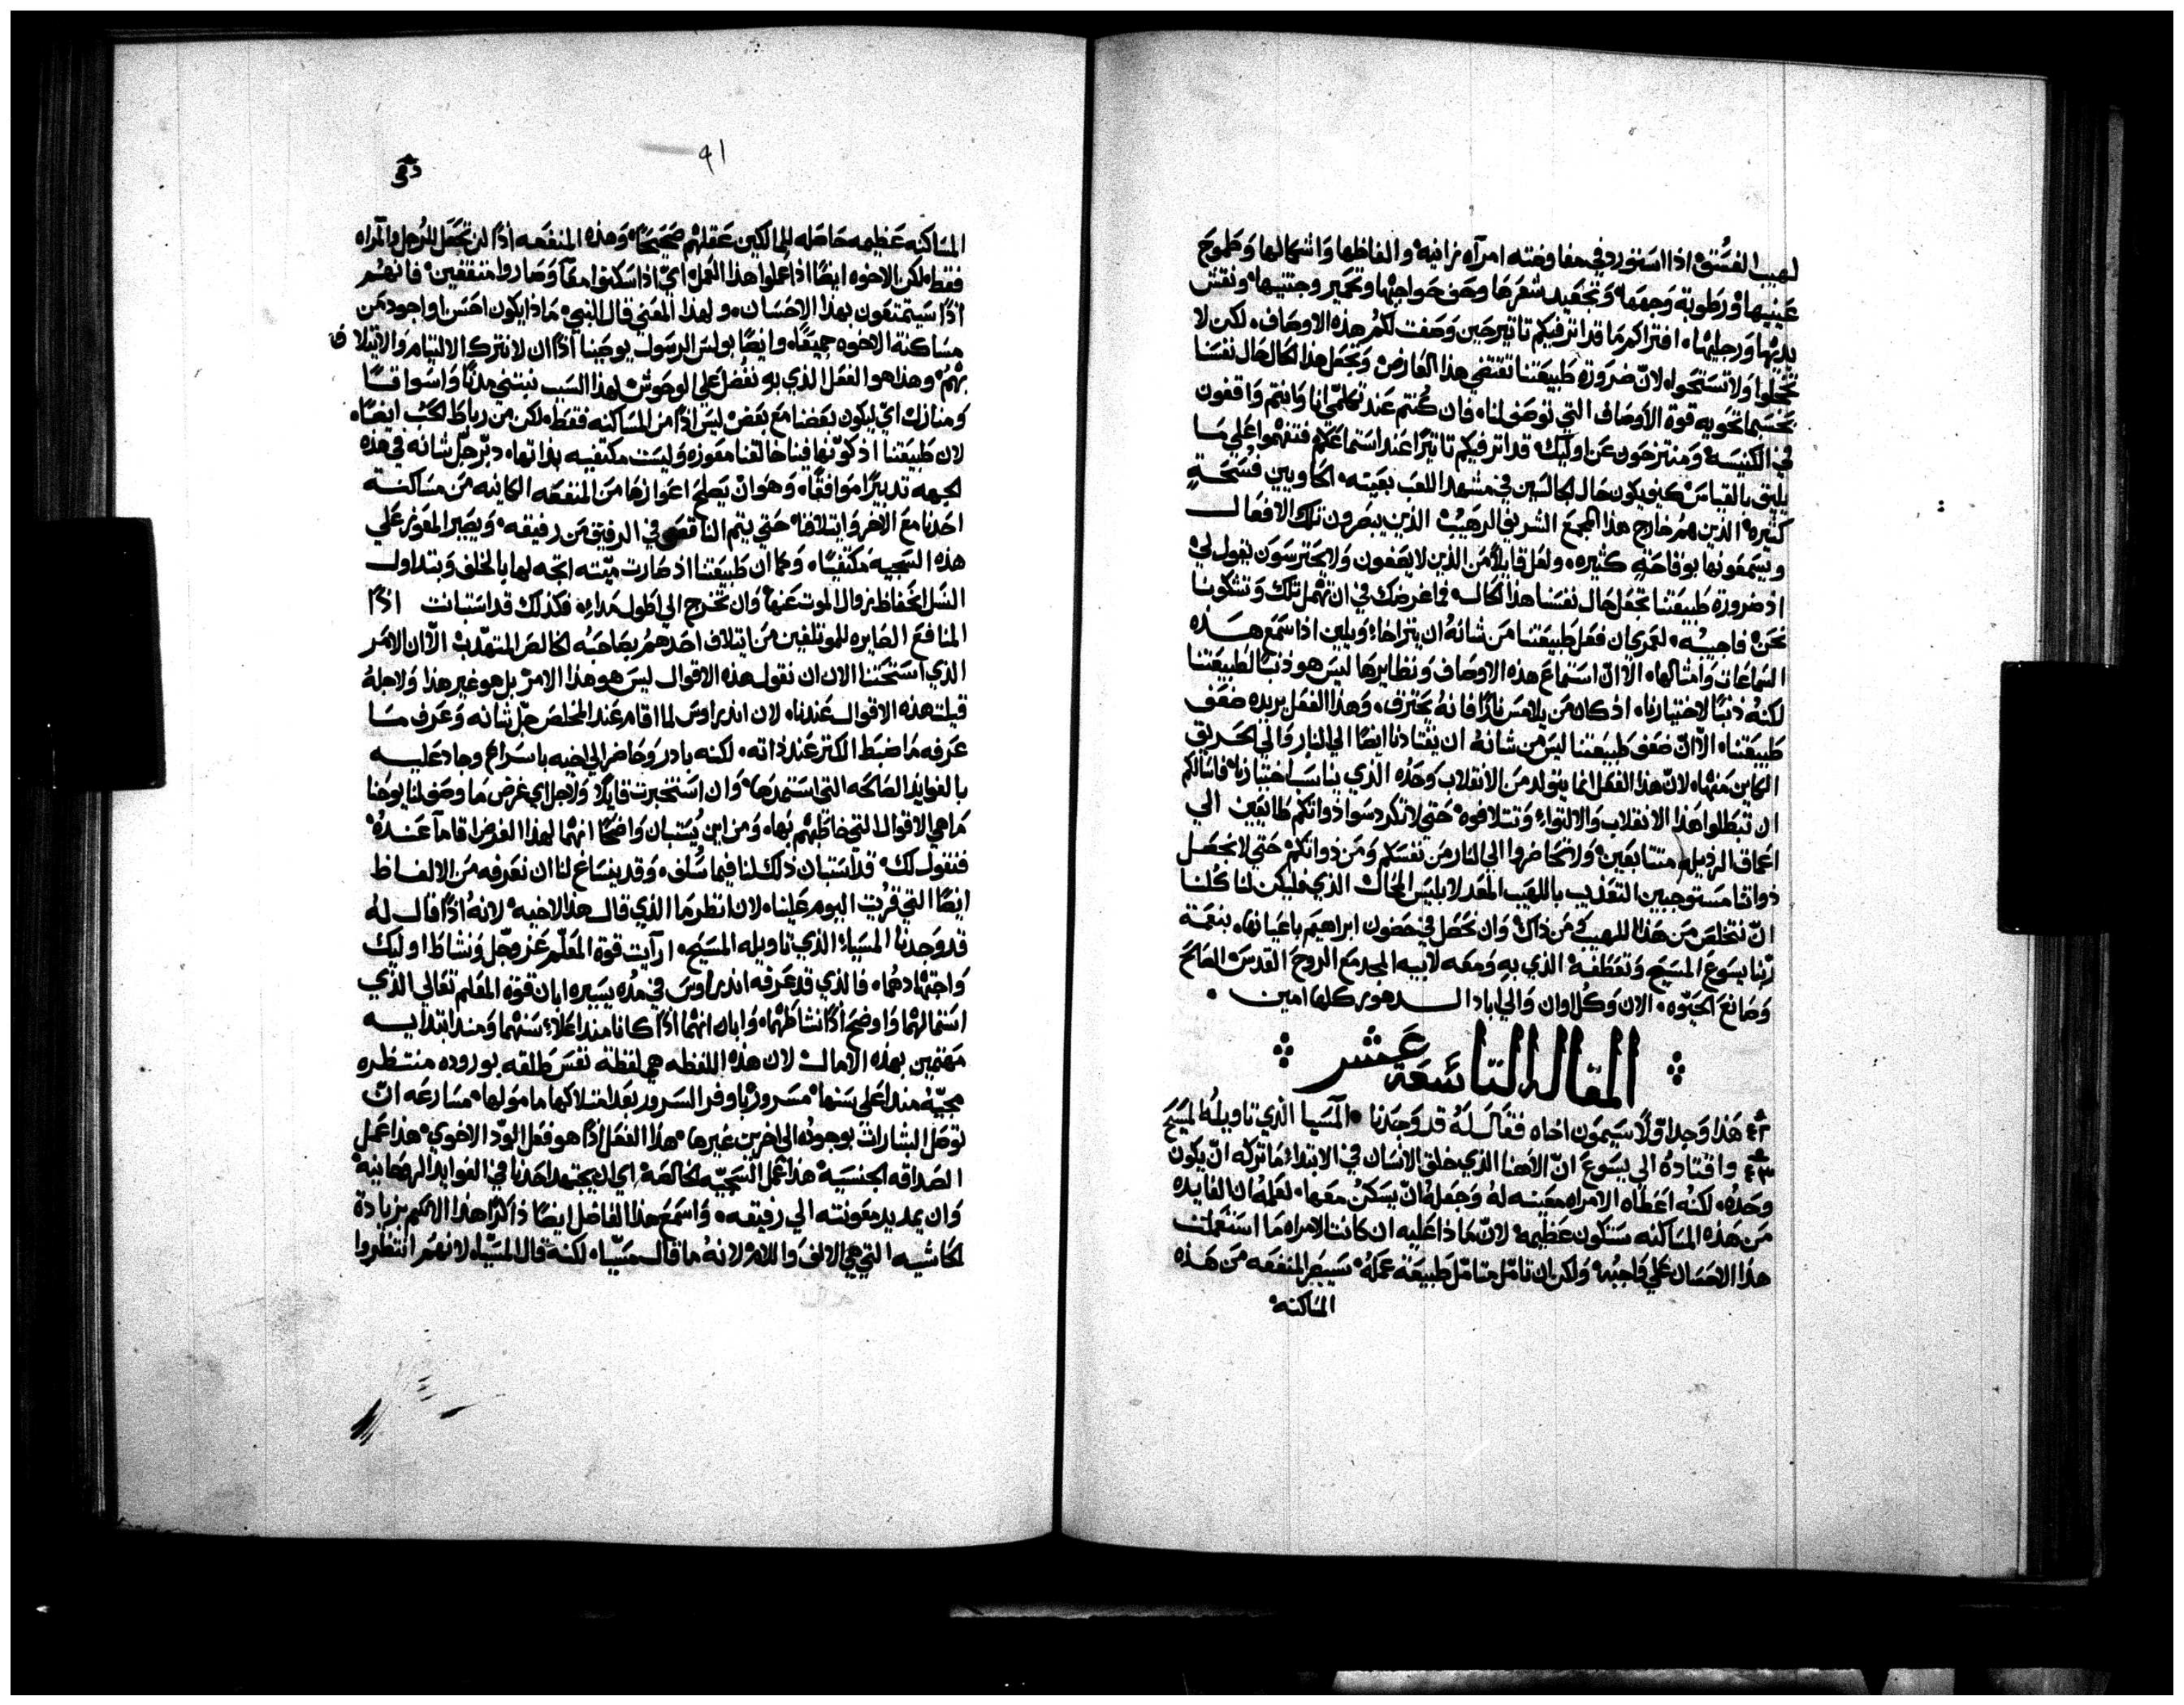 لهيب الفسق اذا استنور وفي مفاوضته امرآه زانيه والفاظها واشكالها وطموح
عينيها ورطوبة وجهها وتجعيد شعرها وحف حواجبها وتحمير وجنتيها ونقش
يديها ورجليها افتراكم ما قد اثر فيكم تاثير حين وصفت لكم هذه الاوصاف لكن لا
تخجلوا ولا تستحوا لان ضرورة طبيعتنا تقتضي هذا العارض وتجعل هذا الحال حال نفسنا
بحسبما تحويه قوة الأوصاف التي توصف لنا فان كنتم عند تكلمي انا وانتم واقفون
في الكنيسه ومنتزحون عن اوليك قد اثر فيكم تاثيرًا عند استماعكم فتفهموا علي ما
يليق بالقياس كيف يكون حال الجالسين في مشهد اللعب بعينه الحاويين فسحةٍ
كثيره الذين هم خارج هذا المجمع الشريف الرهيب الذين يبصرون تلك الافعال
ويسمعونها بوقاحةٍ كثيره ولعل قايلاً من الذين لا يصغون ولا يحترسون يقول لي
اذ ضرورة طبيعتنا تجعل حال نفسنا هذا الحال فما غرضك في ان تهمل تلك وتشكونا
نحن فاجيبه لعمري ان فعل طبيعتنا من شانه ان يتراخا ويلين اذا سمع هذه
السماعات وامثالها الا انّ استماع هذه الاوصاف ونظايرها ليس هو ذنبًا لطبيعتنا
لكنه ذنبًا لاختيارنا اذ كان من يلامس نارًا فانه يحترق وهذا الفعل يريده ضعف
طبيعتنا الا انّ ضعف طبيعتنا ليس من شانه ان يقتادنا ايضًا الي النار والي الحريق
الكاين منها لان هذا الفعل انما يتولد من الانقلاب وحده الذي يناسب اختيارنا فاسالكم
ان تبطلوا هذا الانقلاب والالتواء وتتلافوه حتي لا تكردسوا ذواتكم طايعين الي
اعماق الرذيله متتابعين ولا تحاضروا الي النار من نفسكم ومن ذواتكم حتي لا نحصل
ذواتنا مستوجبين التعذيب باللهيب المعد لابليس المحال الذي فليكن لنا كلنا
انّ نتخلص من هذا اللهيب ومن ذاك وان نحصل في حضون ابراهيم باعيانها بنعمة
ربنا يسوع المسيح وتعطفه الذي به ومعه لابيه المجد مع الروح القدس الصالح
وصانع الحيوه الان وكل اوان والي اباد الدهور كلها امين
المقاله التاسعة عشر
٤٢ هذا وجد اوّلاً سيمون اخاه فقال له قد وجدنا المسيا الذي تاويله المسيح
٤٣ واقتاده الي يسوع انّ الاهنا الذي خلق الانسان في الابتداء ما تركه ان يكون
وحده لكنه اعطاه الامراه معينه له وجعله انّ يسكن معها لعلمه ان الفايده
من هذه المساكنه ستكون عظيمه لانّ ماذا عليه ان كانت الامراه ما استعملت
هذا الاحسان علي واجبه ولكن ان تامّل متامّل طبيعة عمله سيبصر المنفعه من هذه
المساكنه
٩١
المساكنه عظيمه حاصله للمالكين عقلهم صحيحًا وهذه المنفعه اذًا لن تحصل للرجل والمراه
فقط لكن الاخوه ايضًا اذا عملوا هذا العمل ايّ اذا سكنوا معًا وصاروا متفقين فانهم
اذًا سيتمتعون بهذا الاحسان ولهذا المعني قال النبي ماذا يكون احسن واجود من
مساكنة الاخوه جميعًا وايضًا بولس الرسول يوجبنا اذًا ان لا نترك الالتيام والايتلاف
بهم وهذا هو الفعل الذي به نفضل علي الوحوش لهذا السبب نبتني مدنًا واسواقًا
ومنازل ايّ ليكون بعضنا مع بعض ليس اذًا من المساكنه فقط لكن من رباط الحب ايضًا
لان طبيعتنا اذ كوّنها فينا خالقنا معوزه وليست مكتفيه بذاتها دبّر جلّ شانه في هذه
الجهه تدبيرًا موافقًا وهو انّ يصلح اعوازها من المنفعه الكاينه من مساكنة
احدنا مع الاخر وايتلافنا حتي يتم الناقص في الرفيق من رفيقه ويصير المعوز علي
هذه السجيه مكتفيًا وكما ان طبيعتنا اذ صارت ميّته اتجه لها بالخلف وبتداول
النسل الحفاظ بزوال الموت عنها وان تخرج الي اطول مداه فكذلك قد استبانت اذًا
المنافع الصايره للموتلفين من ايتلاف احدهم بصاحبه الخالص المتهذب الاّ ان الامر
الذي استحثنا الان ان نقول هذه الاقوال ليس هو هذا الامر بل هو غير هذا ولاجله
قيلت هذه الاقوال عندنا لان اندراوس لما اقام عند المخلص جلّ شانه وعرف ما
عرفه ما ضبط الكنز عند ذاته لكنه بادر وحاضر الي اخيه باسراع وجاد عليه
بالفوايد الصالحه التي استمدها وان استخبرت قايلاً ولاجل اي غرض ما وصف لنا يوحنا
ما هي الاقوال التي خاطبهم بها ومن اين يستبان واضحًا انهما لهذا الغرض اقاما عنده
فنقول لك قد استبان ذلك لنا فيما سلف وقد ينساغ لنا ان نعرفه من الالفاظ
ايضًا التي قريت اليوم علينا لان انظر ما الذي قال هذا لاخيه لانه اذًا قال له
قد وجدنا المسياء الذي تاويله المسيح ارآيت قوة المعلّم عز وجل ونشاط اوليك
واجتهادهما فالذي قد عرفه اندراوس في مده يسيره ابان قوة المعلم تعالي الذي
استمالهما واوضح اذًا نشاطهما وابان انهما اذًا كانا منذ اعلاء سنهما ومنذ ابتدايه
مهتمين بهذه الامال لان هذه اللفظه هي لفظة نفس طلقه بوروده منتظره
مجيّه منذ اعلي سنها مسروره باوفر السرور بعد امتلاكها مامولها مسارعه انّ
توصل البشارات بوجوده الي اخرين غيرها هذا الفعل اذًا هو فعل الودّ الاخوي هذا عمل
الصداقه الجنسيه هذا عمل السجيّه الخالصه اي ان يجتهد احدنا في الفوايد الروحانيه
وان يمد يد معونته الي رفيقه واسمع هذا الفاضل ايضًا ذاكرًا هذا الاسم بزيادة
الحاشيه التي هي الالف واللام لانه ما قال مسيّا لكنه قال المسيّا لانهم انتظروا